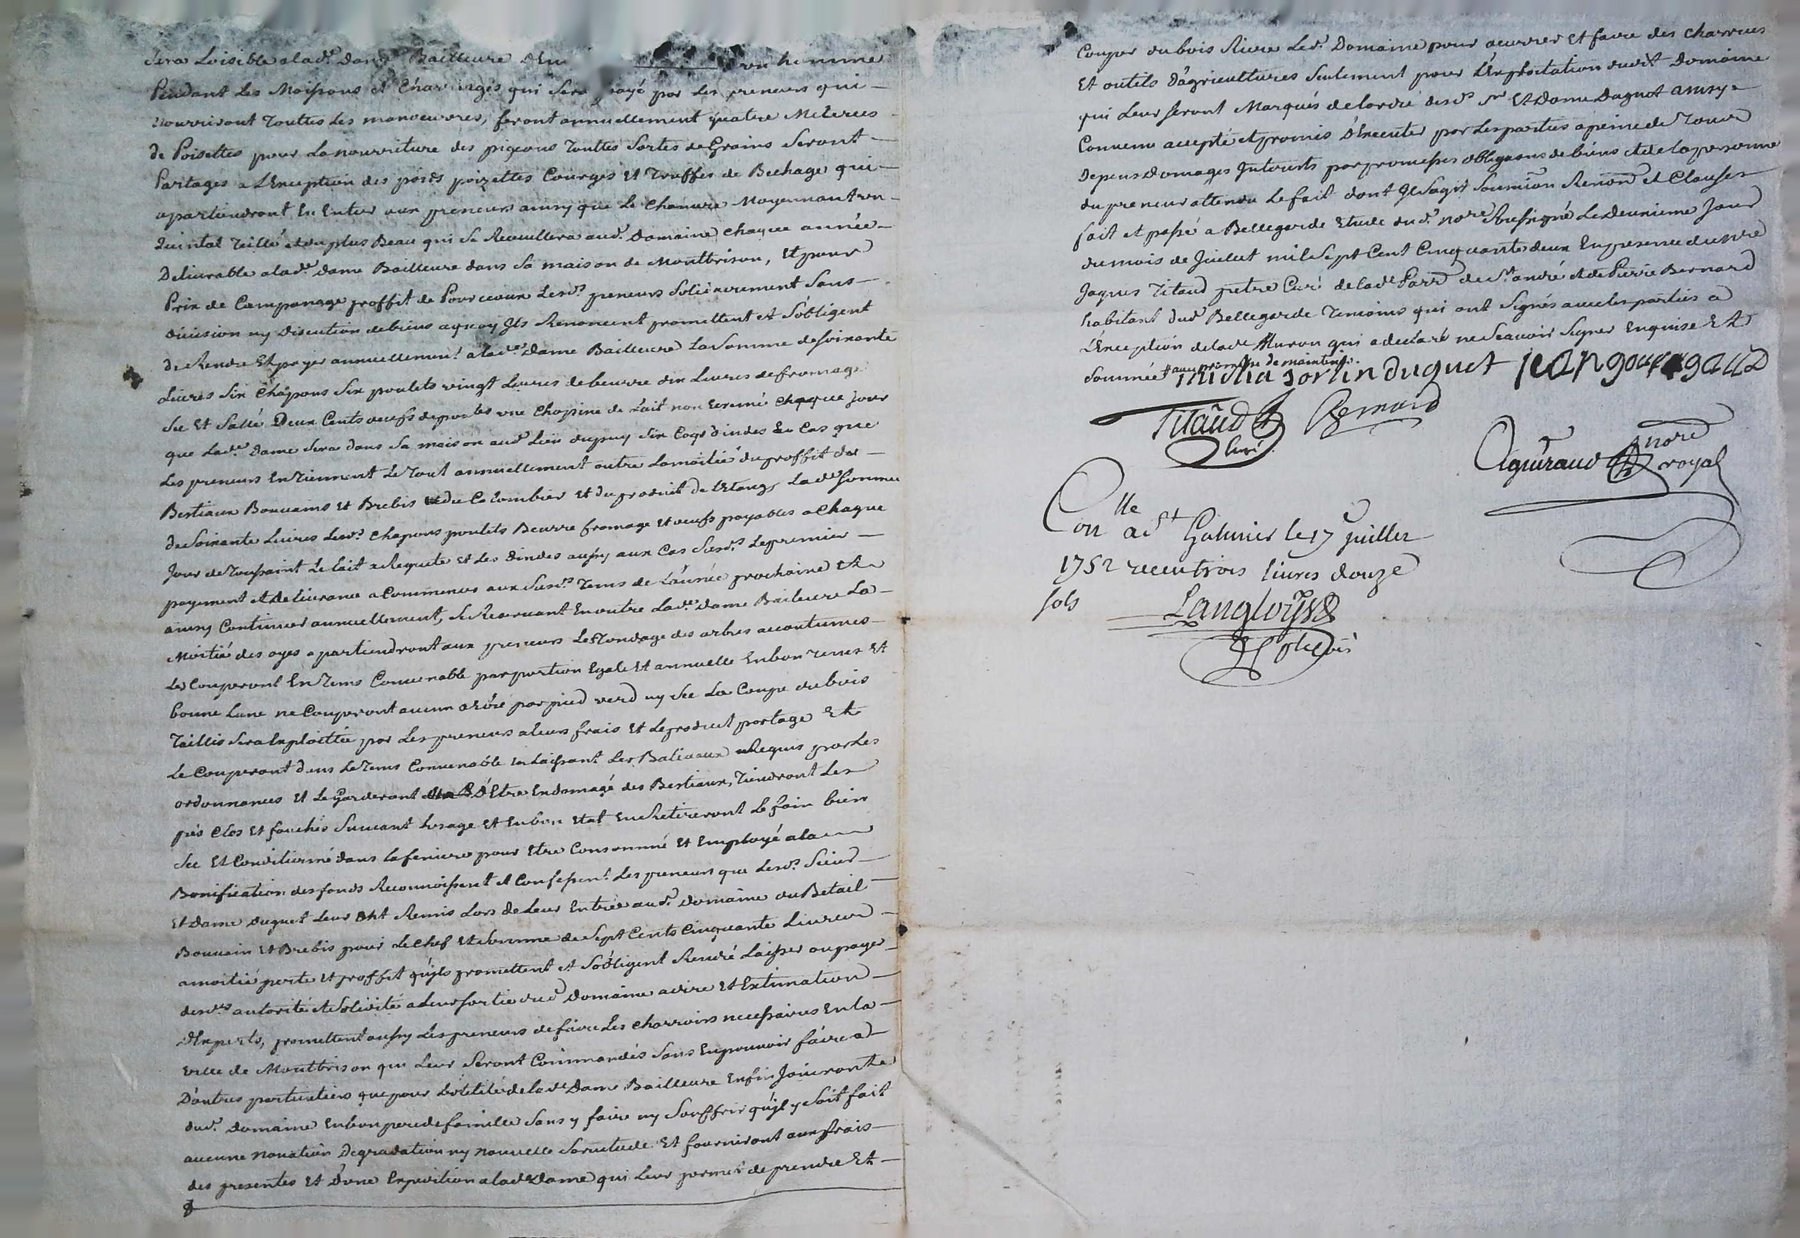 Sera Loisible a lad.e dame Bailleure d'En un homme
Pendant Les Moissons et Charriages qui Sera payé par Les preneurs qui
nourriront Touttes Les manoeuvres, feront annuellement quatre Meterées
de Poisettes pour La nourriture des pigeons Touttes Sortes de Grains Seront
Partagés a L'Exception des poids poizettes Courges Et Truffes de Bechage qui
apartiendront En Entier aux preneurs ainsy que Le Chanvre Moyennant un
Quintal Teillé et du plus Beau qui Se Recueillera aud.t Domaine chaque année
Delivrable a lad.e dame Bailleure dans Sa maison de Montbrison, Et pour
Prix de Campanage proffit de Pourceaux Lesd.s preneurs Solidairement Sans
division ny discution de biens a quoy Ils Renoncent promettent et S'obligent
de Rendre Et payer annuellement a lad.e dame Bailleure La Somme de Soixante
Livres Six Chapons Six poulets vingt Livres de beurre dix Livres de fromage
Sec Et Sallé Deux Cents oeufs de poules une Chopine de Lait non Ecremé chaque jour
que Lad.e Dame Sera dans Sa maison aud.t Lieu dupuy Six Coqs dindes En Cas que
Les preneurs En Tiennent Le Tout annuellement outre La moitié du proffit des
Bestiaux Bouvains et Brebis et du Colombier et du produit de L'étang, Lad.e Somme
de Soixante Livres Lesd.s chapons poulets Beurre fromage et oeufs payables a Chaque
jour de Toussaint Le Lait a Requete et Les dindes aussy aux Cas Susd.s Le premier
payement et delivrance a Commencer aux Susd.s Tems de L'année prochaine et
ainsy Continuer annuellement, Se Reservant En outre Lad.e dame Bailleure La
Moitié des oyes apartiendront aux preneurs Le Tondage des arbres accoutumés
Le Couperont En Tems Convenable par portion Egale Et annuelle En bon Tems Et
bonne Lune ne Couperont aucun arbre par pied verd ny Sec La Coupe du bois
Taillis Sera Exploittée par Les preneurs a leurs frais Et Le produit partagé Et
Le Couperont dans Le Tems Convenable En Laissant Les Baliveaux Requis par Les
ordonnances et Le Garderont d'Etre Endomagé des Bestiaux, Tiendront Les
prés Clos Et fauchés Suivant L'usage Et En bon Etat En Retireront Le foin bien
Sec Et Conditionné dans La feniere pour Etre Consommé Et Employé a la
Bonification des fonds Reconnoissent et Confessent Les preneurs que Lesd.s Sieur
Et Dame duguet Leur Ont Remis Lors de Leur Entrée aud.t domaine du Betail
Bouvain Et Brebis pour Le Chef Et Somme de Sept Cents Cinquante Livres
a moitié perte Et proffit qu'ils promettent et S'obligent Rendre Laisser ou payer
desd.s autorité et Solidité a Leur Sortie dud.t Domaine a dire et Estimation
d'Experts, promettent aussy Les preneurs de faire Les Charrois necessaires En la
ville de Montbrison qui Leur Seront Commandés Sans En pouvoir faire a
D'autres particuliers que pour L'utilité de lad.e Dame Bailleure Enfin Jouiront
dud.t domaine En bon pere de famille Sans y faire ny Souffrir qu'il y Soit fait
aucune novation Degradation ny nouvelle Servitude Et fourniront aux frais
des presentes Et d'une Expedition a lad.e Dame qui Leur permet de prendre Et
Couper du bois Riere Led.t Domaine pour oeuvrer Et faire des charrues
Et outils d'agricultures Seulement pour L'Exploitation dud.t Domaine
qui Leur Seront Marqués de l'ordre desd.s Sr. Et Dame Duguet ainsy
Convenu accepté et promis d'Executer par Les parties a peine de Tous
depens domages Interets par promesses obligaons de biens et de la personne
du preneur attendu Le fait dont Il S'agit Soumion Renon et Clauses
fait et passé a Bellegarde Etude dud.t nore Soussigné Le Deuxieme Jour
du mois de Juillet mil Sept Cent Cinquante deux En presence de mre
Jaques Titaud pretre Curé de lad.e Parr de St. andré et de Pierre Bernard
habitant dud.t Bellegarde Temoins qui ont Signés avec les parties a
L'Exception de lad.e Thuron qui a declaré ne Scavoir Signer Enquise Et
Sommée
sorlin duguet jean gouregaud
Titaud Bernard
Curé
Aguiraud nore
royal
Con.lle a St Galmier le 17 juillet
1752 receu trois livres douze
sols
Langloys